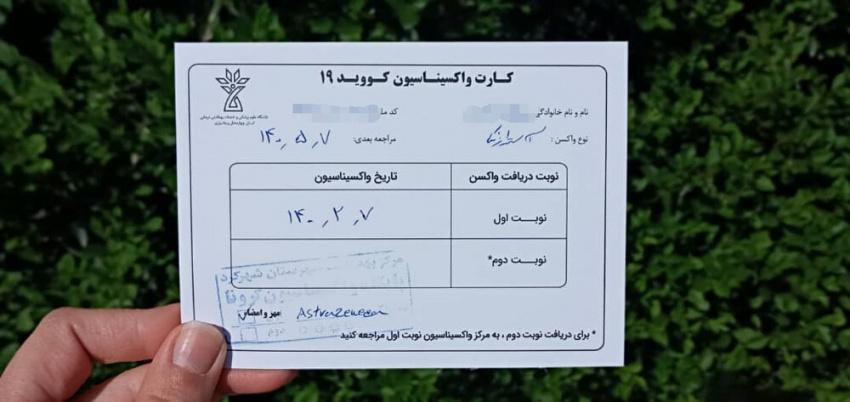 کارت واکسیناسیون کووید ۱۹
دانشگاه علوم پزشکی و خدمات بهداشتی درمانی
استان چهارمحال و بختیاری
نام و نام خانوادگی
کد ملی
نوع واکسن: آسترازنکا
مراجعه بعدی: ۱۴۰۰٫۵٫۷
نوبت دریافت واکسن
تاریخ واکسیناسیون
نوبت اول
۱۴۰۰٫۲٫۷
نوبت دوم*
شهرستان شهرکرد
واکسیناسیون کرونا
مهر و امضاء
AstraZeneca
* برای دریافت نوبت دوم ، به مرکز واکسیناسیون نوبت اول مراجعه کنید